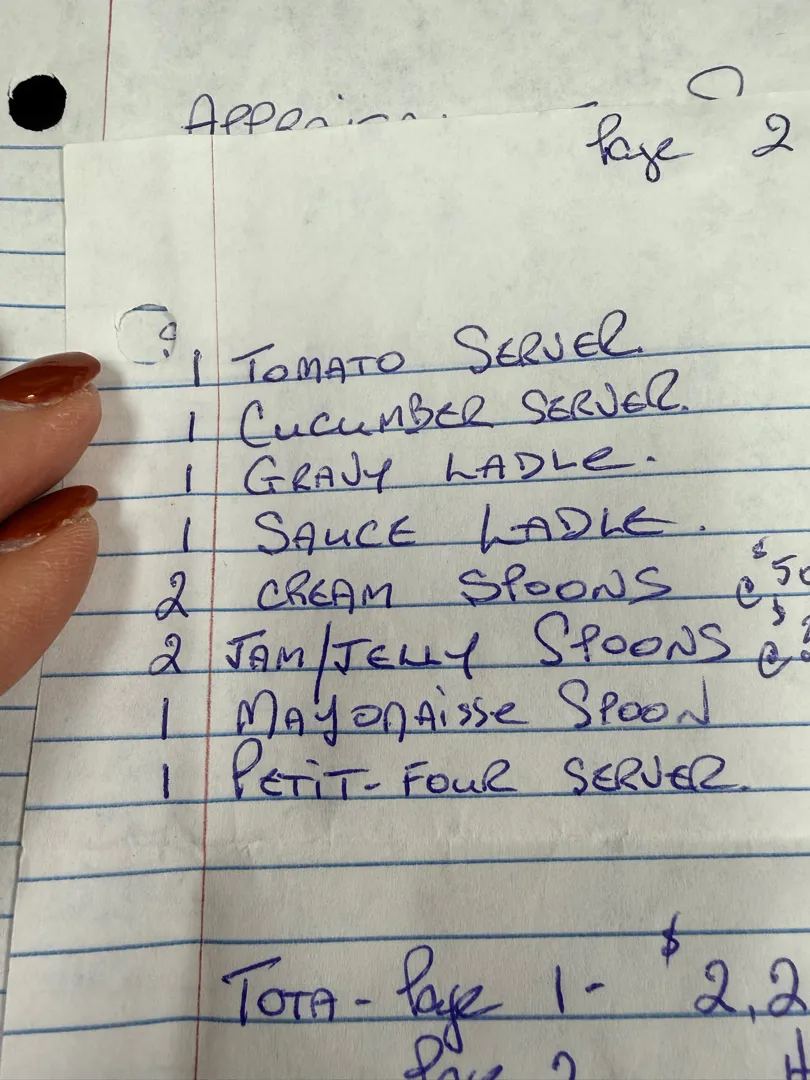 Page 2
1 TOMATO SERVER.
1 CUCUMBER SERVER.
1 GRAVY LADLE.
1 SAUCE LADLE.
2 CREAM SPOONS @ $50
2 JAM/JELLY SPOONS @ $
1 MAYONAISSE SPOON
1 PETIT-FOUR SERVER.
TOTA- Page 1- $2,2
Page 2